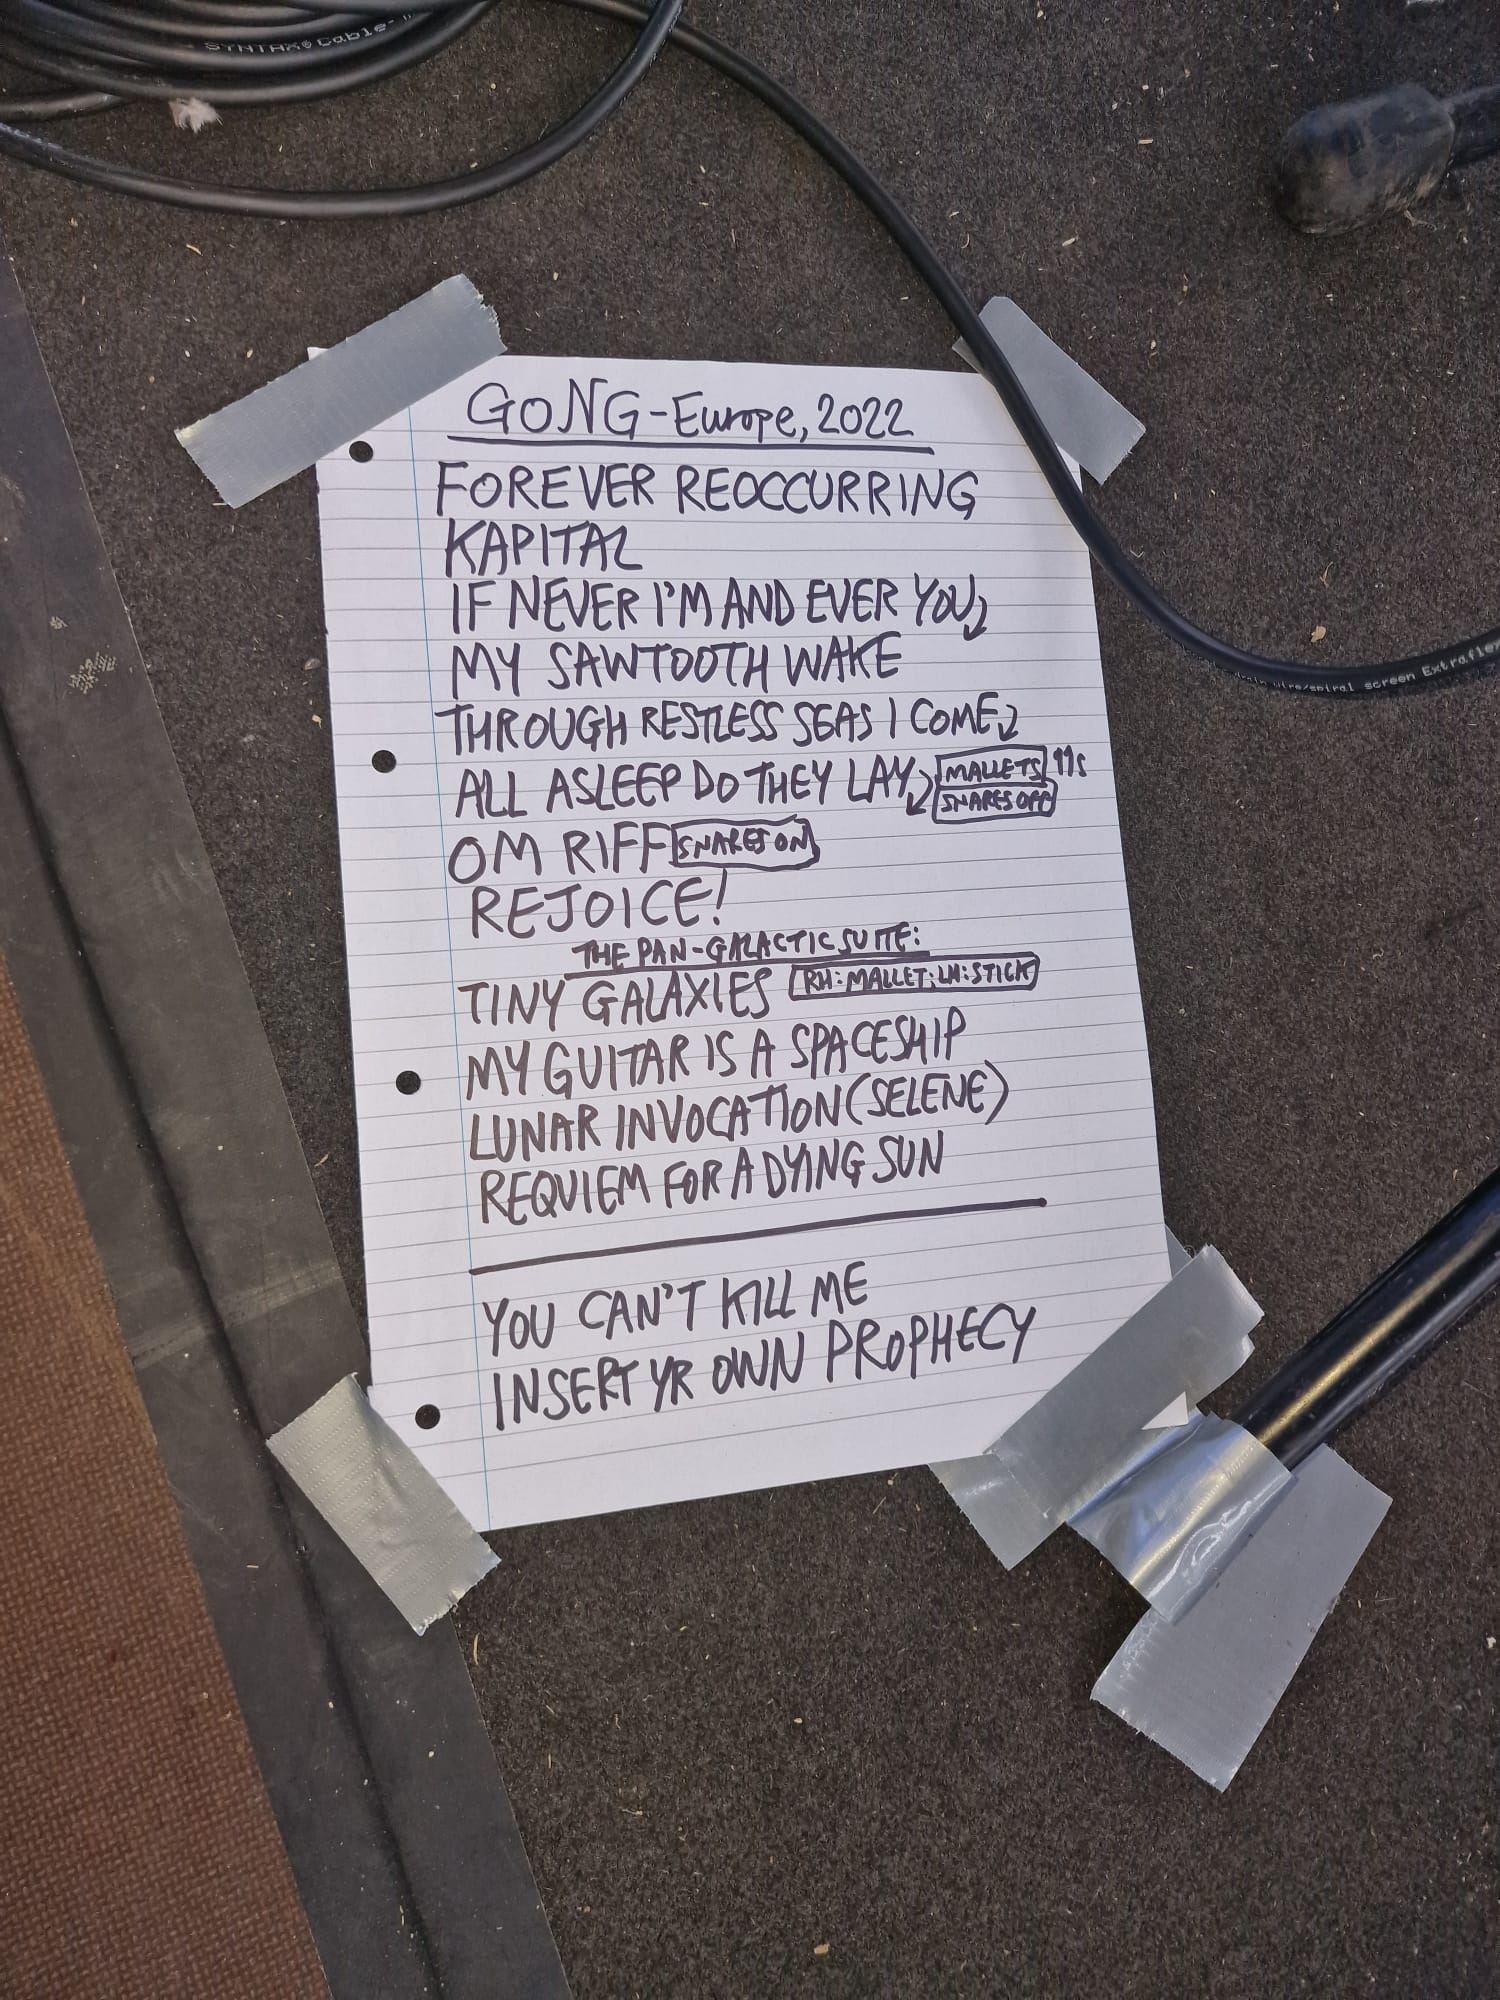 SYNTAX® Cable-
GONG-Europe, 2022
FOREVER REOCCURRING
KAPITAL
IF NEVER I'M AND EVER YOU
MY SAWTOOTH WAKE
THROUGH RESTLESS SEAS I COME
ALL ASLEEP DO THEY LAY MALLETS
SNARES OFF
OM RIFF SNARES ON
REJOICE!
THE PAN-GALACTIC SUITE:
TINY GALAXIES RH: MALLET; LH: STICK
MY GUITAR IS A SPACESHIP
LUNAR INVOCATION (SELENE)
REQUIEM FOR A DYING SUN
YOU CAN'T KILL ME
INSERT YR OWN PROPHECY
wire/spiral screen Extraflex